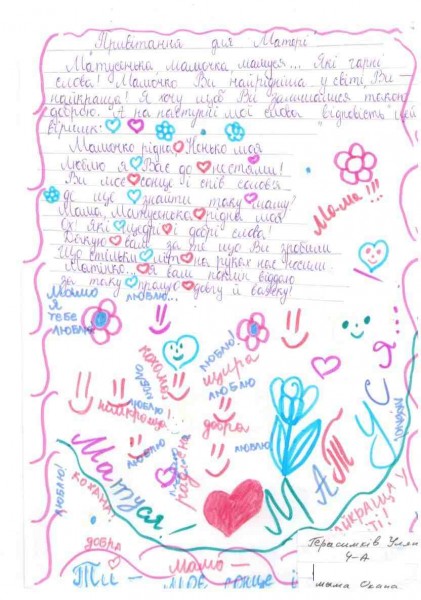 Привітання для Матері
Матусенька, мамочка, мамуся... Які гарні
слова! Мамочко Ви найрідніша у світі, Ви
найкраща! Я хочу щоб Ви залишалися такою
доброю. А на наступні мої слова "відповість" цей
віршик:
Мамочко рідна, Ненько моя
Люблю я Вас до нестями!
Ви моє сонце і спів солов'я
де ще знайти таку маму!
Мама, Матусенько рідна моя
Ох! Які щедрі і добрі слова!
Дякую вам за те що Ви зробили
Що стільки літ на руках нас носили.
Матінко... я вам поклін віддаю
за таку прямую довгу й важку!
Мама!!!
Мамо
я
тебе
люблю
люблю...
кохана
люблю!
щира
люблю
найкраща
люблю!
добра
люблю
люблю
Матуся!
МАТУСЯ...
люблю!
кохана
люблю!
добра
НАЙКРАЩА У
ТІ!
Мамо —
Ти — моє сонце і
Герасимків Уляна
4-А
мама Оксана